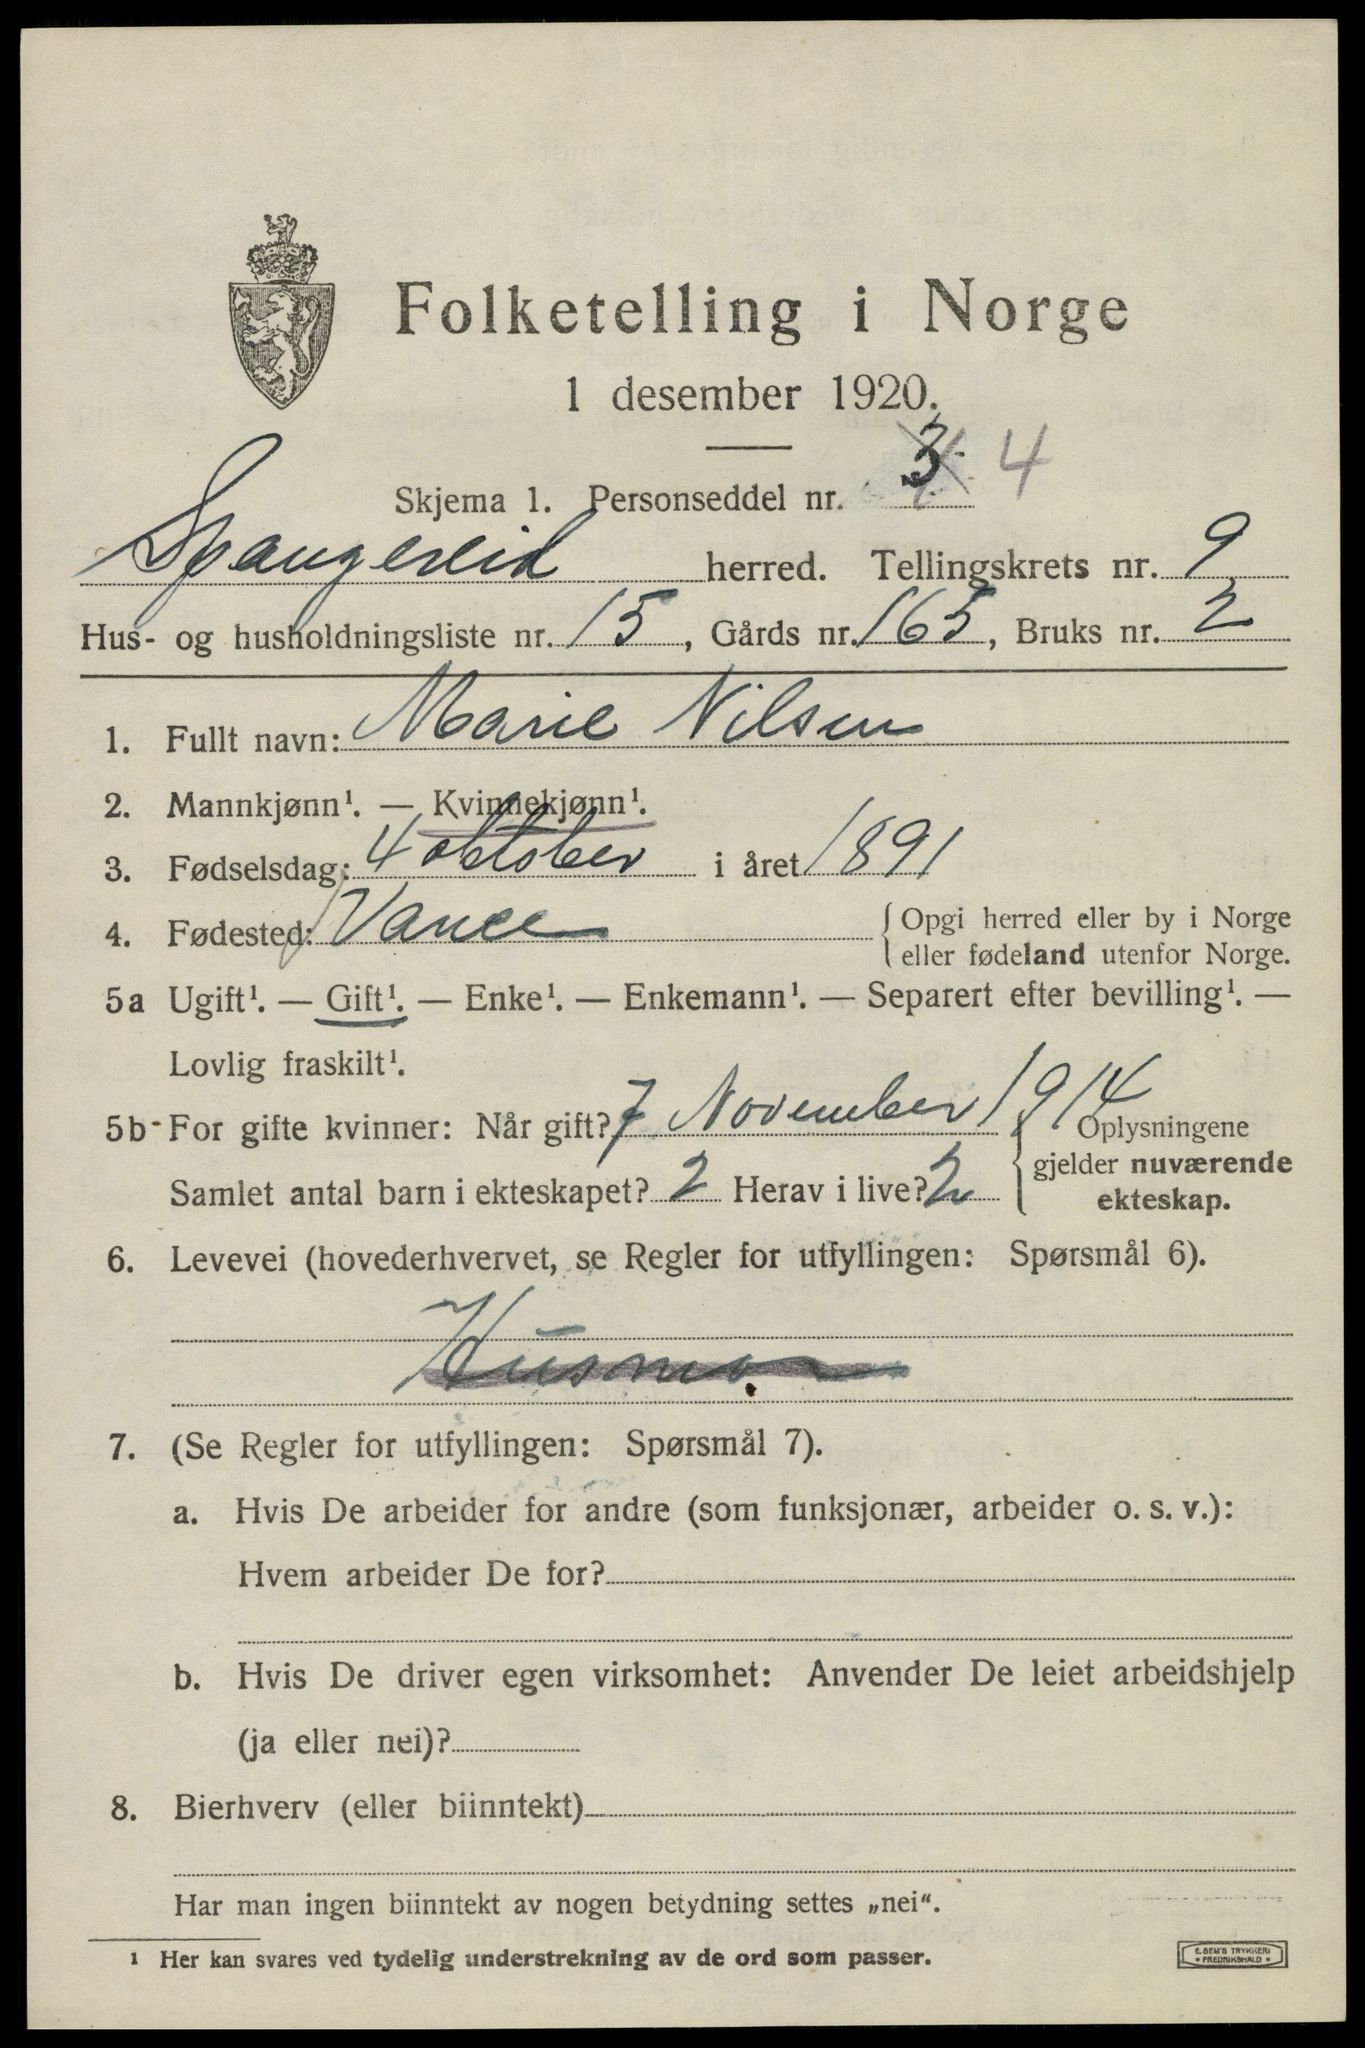 Folketelling i Norge
1 desember 1920.
Skjema 1. Personseddel nr. 3 4
Spangereid herred. Tellingskrets nr. 9
Hus- og husholdningsliste nr. 15, Gårds nr. 165, Bruks nr. 2
1. Fullt navn: Marie Nilsen
2. Mannkjønn¹. — Kvinnekjønn¹.
3. Fødselsdag: 4 oktober i året 1891
4. Fødested: Vanse { Opgi herred eller by i Norge
eller fødeland utenfor Norge.
5a Ugift¹. — Gift¹. — Enke¹. — Enkemann¹. — Separert efter bevilling¹. —
Lovlig fraskilt¹.
5b For gifte kvinner: Når gift? 7 November 1914
Samlet antal barn i ekteskapet? 2 Herav i live? 2
{ Oplysningene
gjelder nuværende
ekteskap.
6. Levevei (hovederhvervet, se Regler for utfyllingen: Spørsmål 6).
Husmor
7. (Se Regler for utfyllingen: Spørsmål 7).
a. Hvis De arbeider for andre (som funksjonær, arbeider o. s. v.):
Hvem arbeider De for?
b. Hvis De driver egen virksomhet: Anvender De leiet arbeidshjelp
(ja eller nei)?
8. Bierhverv (eller biinntekt)
Har man ingen biinntekt av nogen betydning settes „nei“.
¹ Her kan svares ved tydelig understrekning av de ord som passer.
E. SEM'S TRYKKERI
* FREDRIKSHALD *